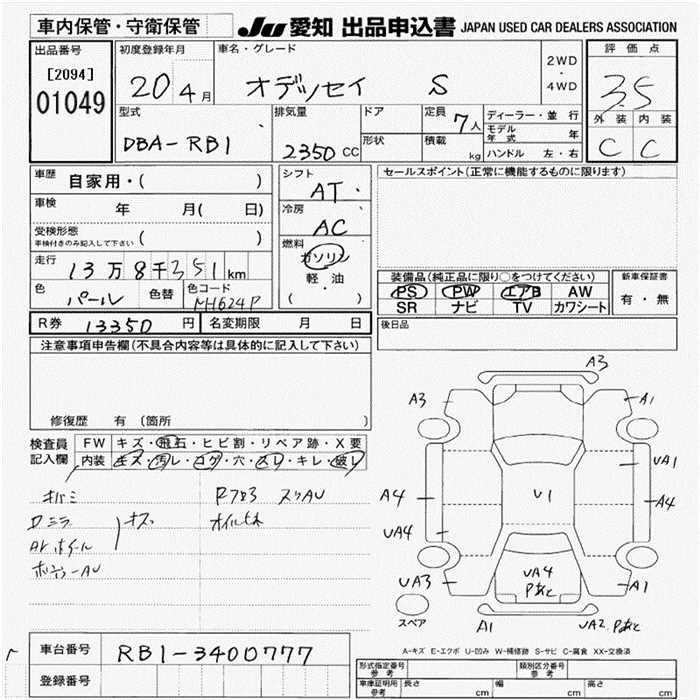 車内保管・守衛保管
JU 愛知 出品申込書 JAPAN USED CAR DEALERS ASSOCIATION
出品番号
[2094]
01049
初度登録年月
20年4月
車名・グレード
オデッセイ S
2WD
・
4WD
評価点
3.5
外装 内装
C C
型式
DBA-RB1
排気量
2350 CC
ドア
形状
定員
7人
積載
kg
ディーラー・並行
モデル年式 年
ハンドル 左・右
車歴
自家用・( )
車検
年 月( 日)
受検形態
車検付きのみ記入して下さい ( )
走行
13万8千351km
色
パール
色替
色コード
NH624P
シフト
AT
冷房
AC
燃料
ガソリン
軽油
( ・ )
セールスポイント(正常に機能するものに限ります)
装備品(純正品に限り○をつけてください)
PS PW エアB AW
SR ナビ TV カワシート
新車保証書
有・無
R券 13350円
名変期限 月 日
後日品
注意事項申告欄(不具合内容等は具体的に記入して下さい)
修復歴 有 (箇所 )
検査員記入欄
FW キズ・飛石・ヒビ割・リペア跡・X要
内装 キズ・汚レ・コゲ・穴・スレ・キレ・破レ
Dミラ
キズ
スリAU
A3
A3
A1
UA1
A4
U1
A4
UA4
UA3
UA4
Pあと
A1
スペア
A1
UA2. Pあと
A-キズ E-エクボ U-凹み W-補修跡 S-サビ C-腐食 XX-交換済
車台番号
RB1-3400777
登録番号
形式指定番号
参考
類別区分番号
参考
車庫証明用
参考
長さ cm
幅 cm
高さ cm